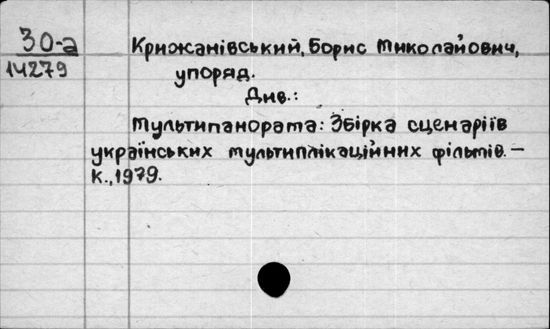 30-а
14279
Крижанівський, Борис Миколайович,
упоряд.
Див.:
Мультипанорама: Збірка сценаріїв
українських мультиплікаційних фільмів. –
К., 1979.